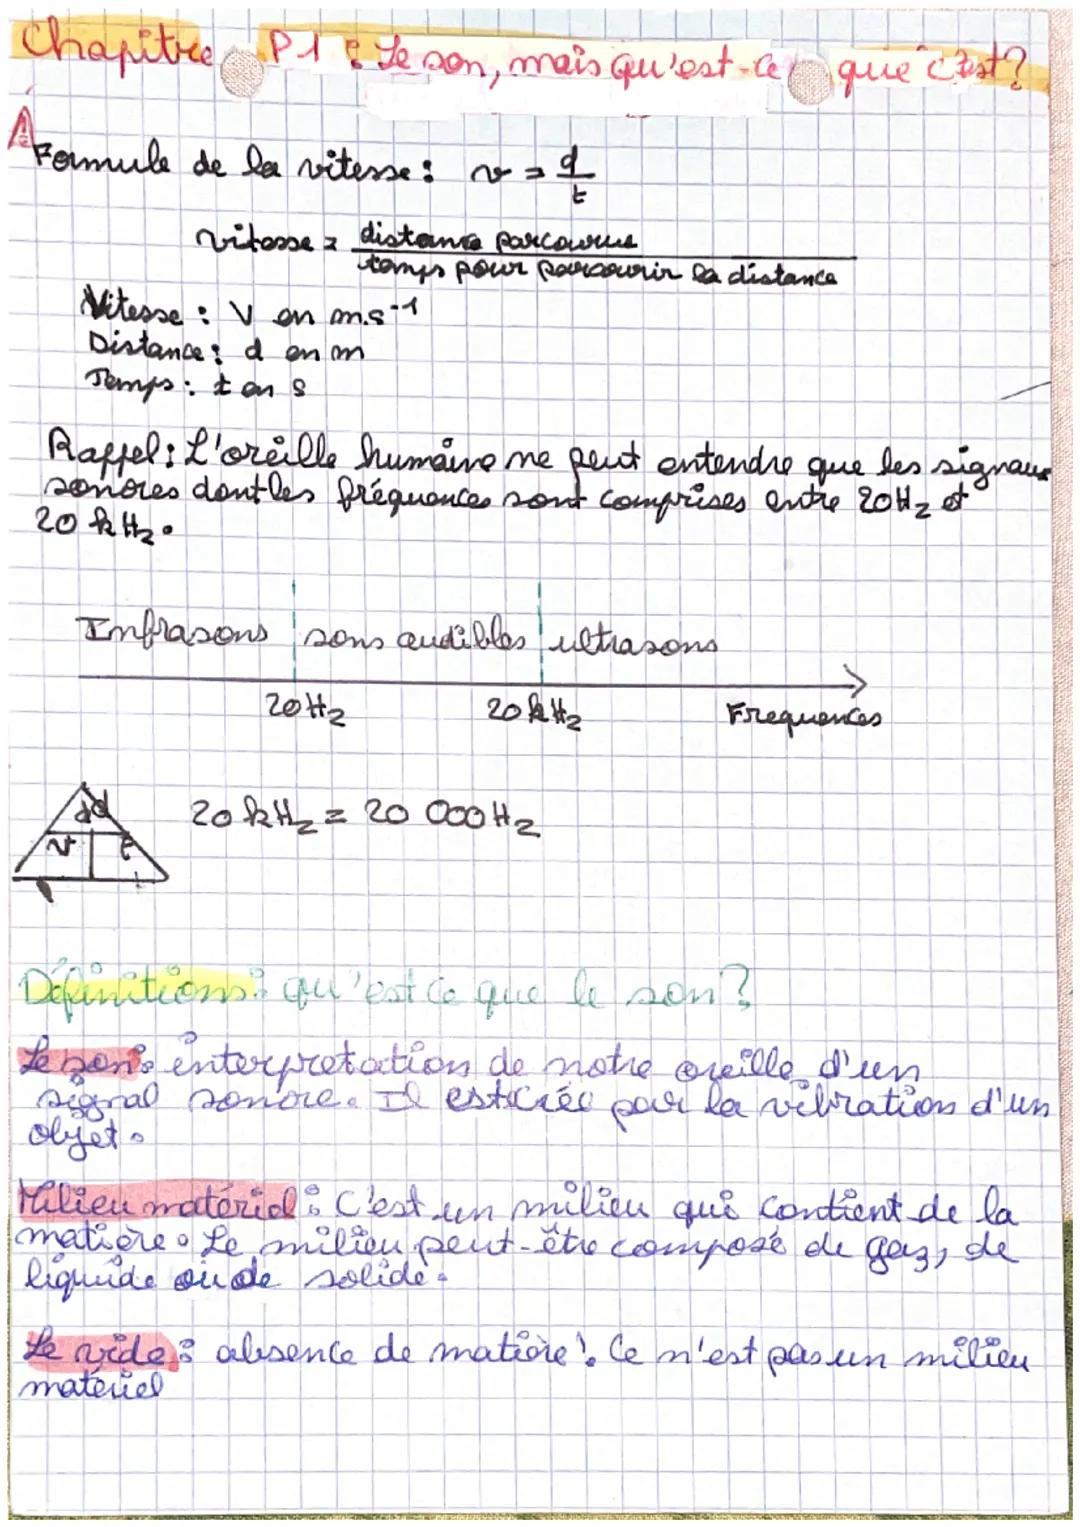 Chapitre P1 : Le son, mais qu'est-ce que c'est ?
A
Formule de la vitesse : v = d/t
vitesse = distance parcourue / temps pour parcourir la distance
Vitesse : V en m.s⁻¹
Distance : d en m
Temps : t en s
Rappel : L'oreille humaine ne peut entendre que les signaux
sonores dont les fréquences sont comprises entre 20 Hz et
20 kHz.
Infrasons sons audibles ultrasons
20 Hz 20 kHz Frequences
d
v t
20 kHz = 20 000 Hz
Définitions : qu'est ce que le son ?
Le son : interpretation de notre oreille d'un
signal sonore. Il est créé par la vibration d'un
objet.
Milieu matériel : C'est un milieu qui contient de la
matière. Le milieu peut-être composé de gaz, de
liquide ou de solide.
Le vide : absence de matière. Ce n'est pas un milieu
matériel